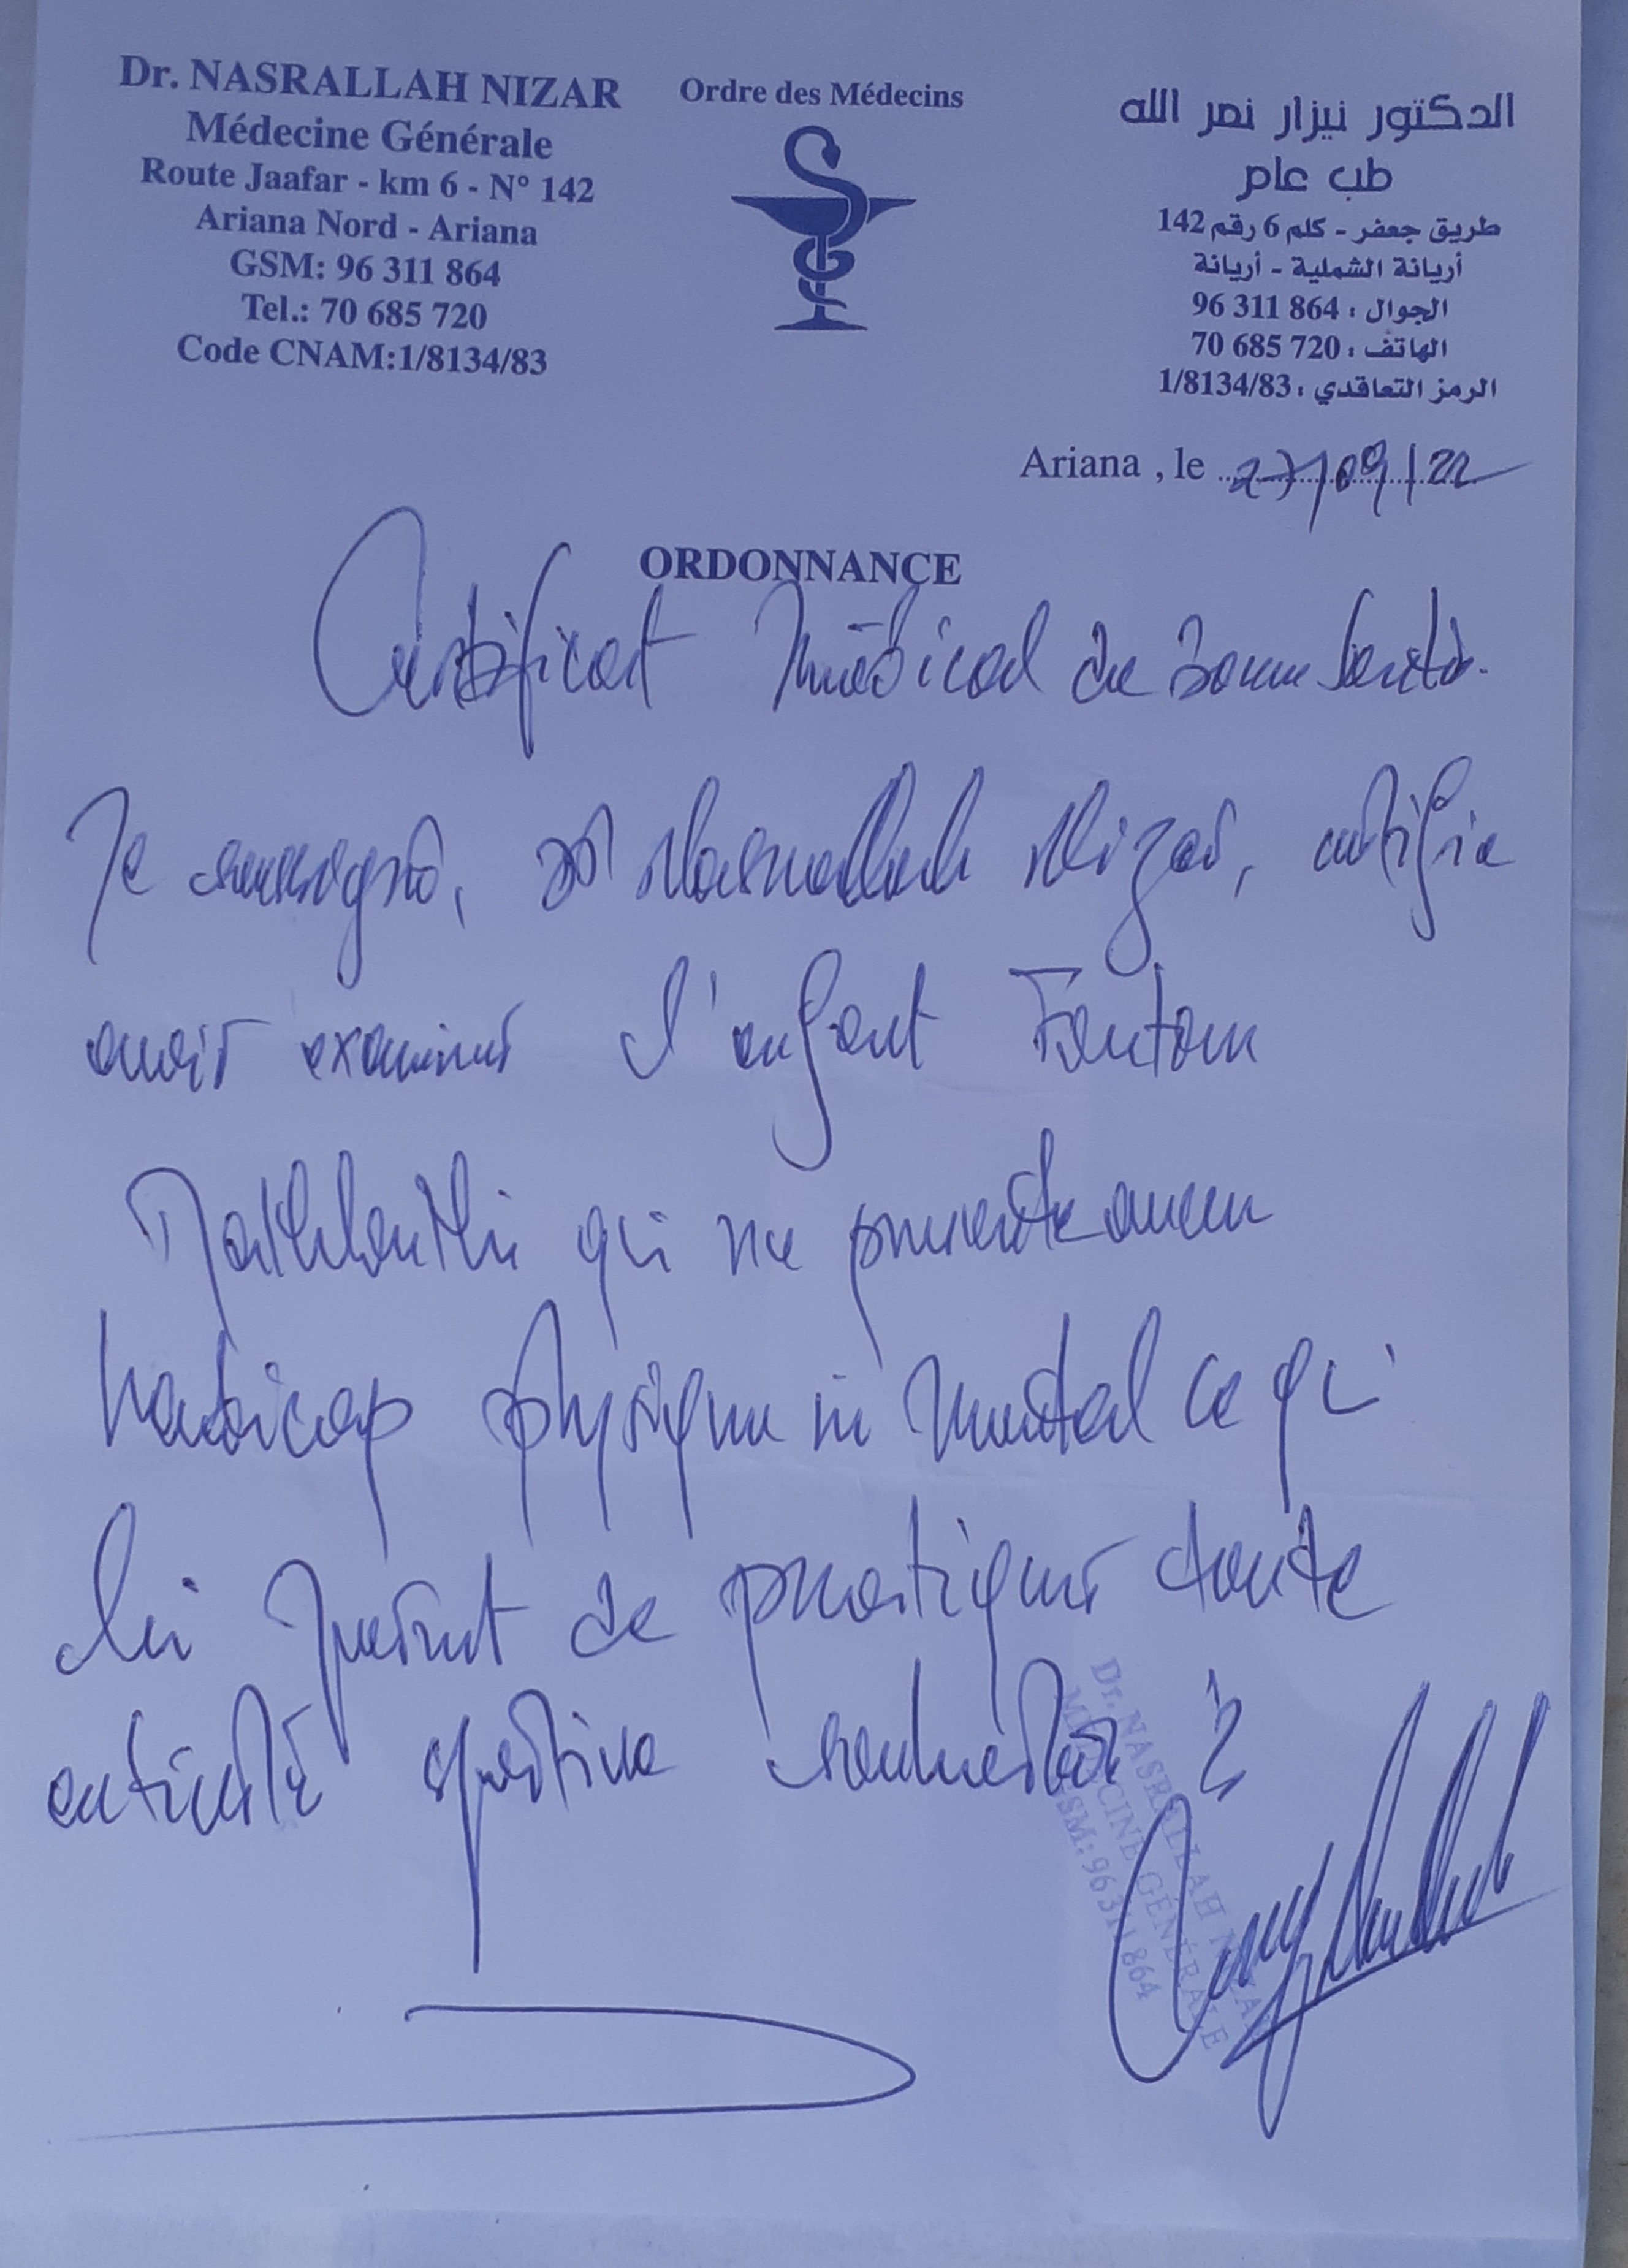 Dr. NASRALLAH NIZAR
Médecine Générale
Route Jaafar - km 6 - N° 142
Ariana Nord - Ariana
GSM: 96 311 864
Tel.: 70 685 720
Code CNAM:1/8134/83
Ordre des Médecins
الدكتور نيزار نصر الله
طب عام
طريق جعفر - كلم 6 رقم 142
أريانة الشملية - أريانة
الجوال : 96 311 864
الهاتف : 70 685 720
الرمز التعاقدي : 1/8134/83
Ariana , le 27/09/22
ORDONNANCE
Certificat médical de bonne santé.
Je soussigné, Dr Nasrallah Nizar, certifie
avoir examiné l'enfant
qui ne présente aucun
handicap physique ni mental ce qui
lui permet de pratiquer toute
activité sportive
Dr. NASRALLAH NIZAR
MÉDECINE GÉNÉRALE
GSM: 96 311 864